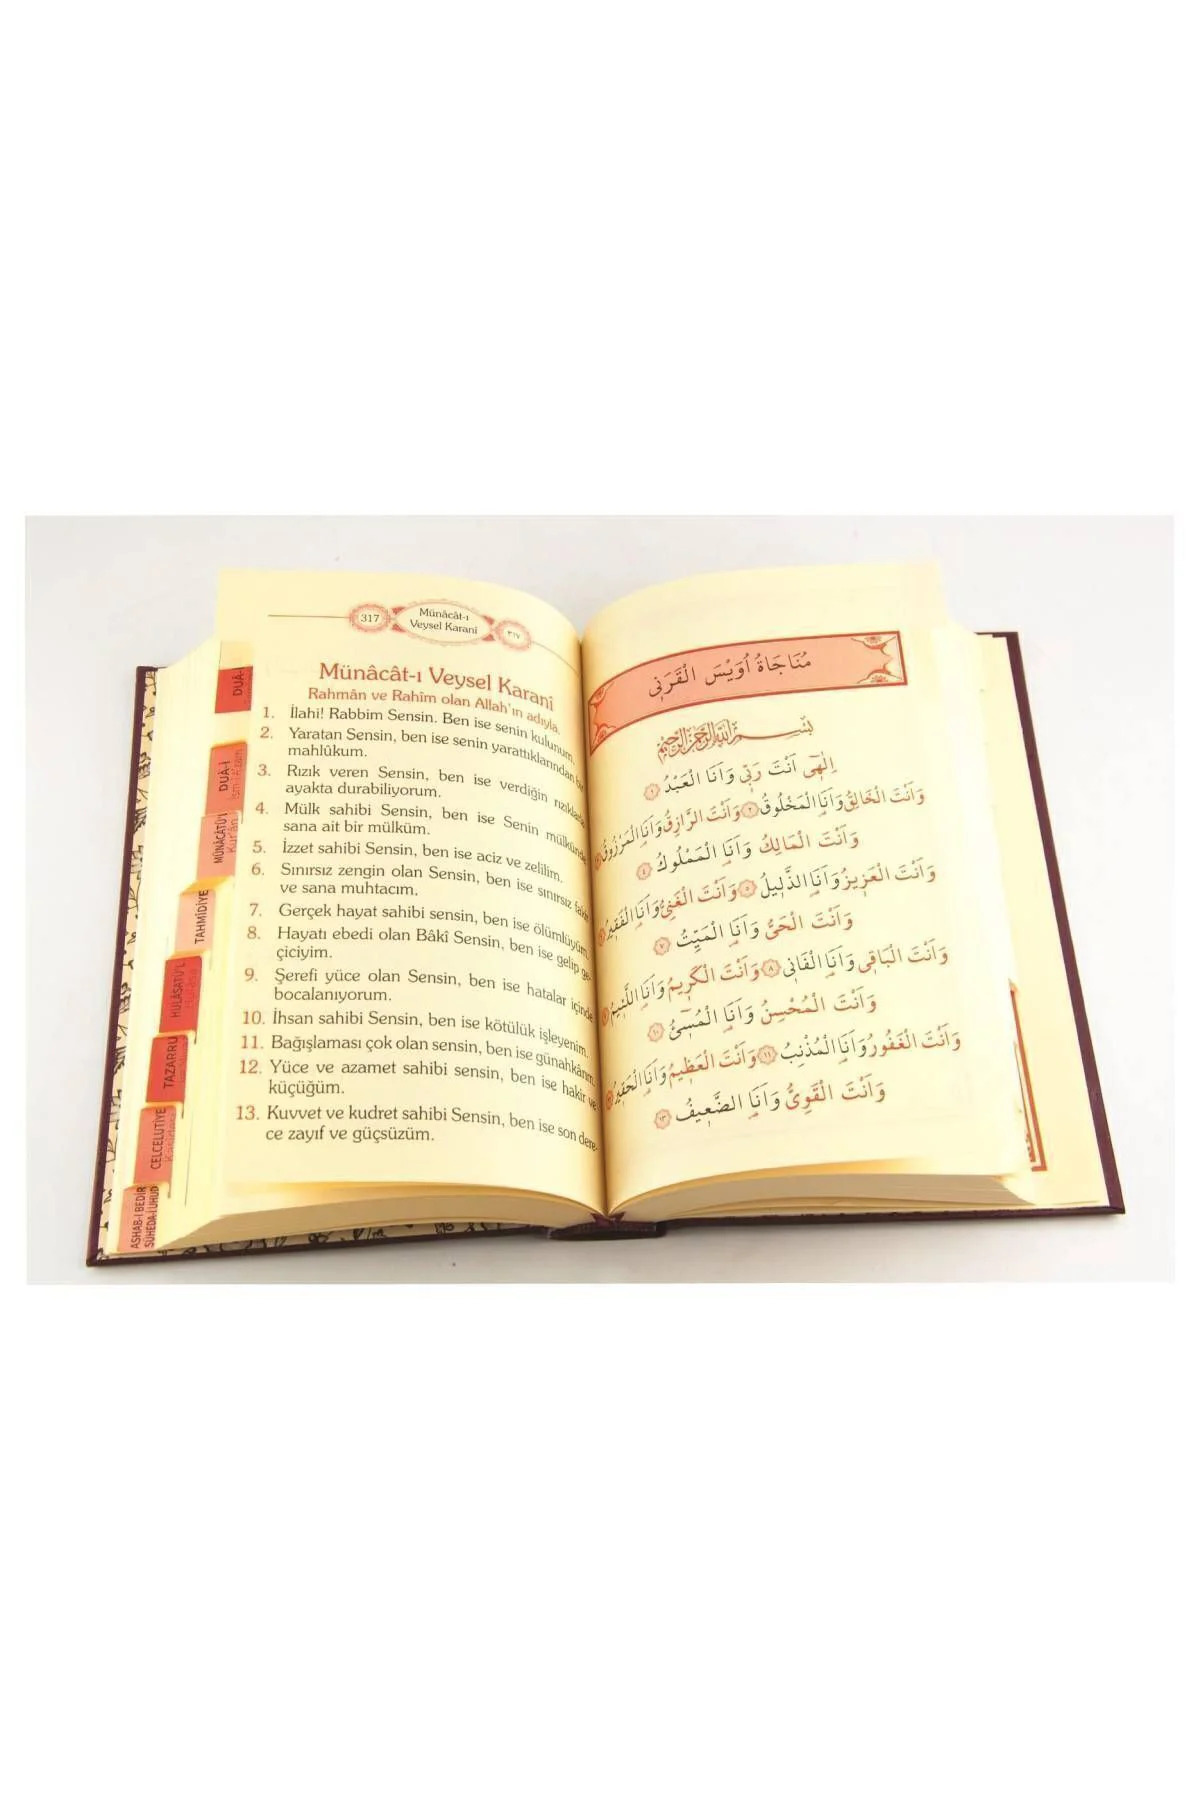 317
Münâcât-ı
Veysel Karanî
٣١٧
Münâcât-ı Veysel Karanî
Rahmân ve Rahîm olan Allah'ın adıyla.
1. İlahi! Rabbim Sensin. Ben ise senin kulunum.
2. Yaratan Sensin, ben ise senin yarattıklarından bir
mahlûkum.
3. Rızık veren Sensin, ben ise verdiğin rızıklarla
ayakta durabiliyorum.
4. Mülk sahibi Sensin, ben ise Senin mülkünde
sana ait bir mülküm.
5. İzzet sahibi Sensin, ben ise aciz ve zelilim.
6. Sınırsız zengin olan Sensin, ben ise sınırsız fakir
ve sana muhtacım.
7. Gerçek hayat sahibi sensin, ben ise ölümlüyüm.
8. Hayatı ebedi olan Bâki Sensin, ben ise gelip ge-
çiciyim.
9. Şerefi yüce olan Sensin, ben ise hatalar içinde
bocalanıyorum.
10. İhsan sahibi Sensin, ben ise kötülük işleyenim.
11. Bağışlaması çok olan sensin, ben ise günahkârım.
12. Yüce ve azamet sahibi sensin, ben ise hakir ve
küçüğüm.
13. Kuvvet ve kudret sahibi Sensin, ben ise son dere-
ce zayıf ve güçsüzüm.
مُنَاجَاةُ اُوَيْسَ الْقَرَنِى
بِسْمِ اللّٰهِ الرَّحْمٰنِ الرَّحِيمِ
اِلٰهِى اَنْتَ رَبِّى وَاَنَا الْعَبْدُ ١
وَاَنْتَ الْخَالِقُ وَاَنَا الْمَخْلُوقُ ٢ وَاَنْتَ الرَّازِقُ وَاَنَا الْمَرْزُوقُ ٣
وَاَنْتَ الْمَالِكُ وَاَنَا الْمَمْلُوكُ ٤
وَاَنْتَ الْعَزِيزُ وَاَنَا الذَّلِيلُ ٥ وَاَنْتَ الْغَنِىُّ وَاَنَا الْفَقِيرُ ٦
وَاَنْتَ الْحَىُّ وَاَنَا الْمَيِّتُ ٧
وَاَنْتَ الْبَاقِى وَاَنَا الْفَانِى ٨ وَاَنْتَ الْكَرِيمُ وَاَنَا اللَّئِيمُ ٩
وَاَنْتَ الْمُحْسِنُ وَاَنَا الْمُسِىءُ ١٠
وَاَنْتَ الْغَفُورُ وَاَنَا الْمُذْنِبُ ١١ وَاَنْتَ الْعَظِيمُ وَاَنَا الْحَقِيرُ ١٢
وَاَنْتَ الْقَوِىُّ وَاَنَا الضَّعِيفُ ١٣
DUÂ-İ
DUÂ-İ
İsm-i A'zam
MÜNÂCÂTÜ'L
Kur'ân
TAHMÎDİYE
HULÂSATÜ'L
TAZARRU
CELCELUTİYE
Kasidesi
ASHAB-I BEDİR
ŞÜHEDA-İ UHUD